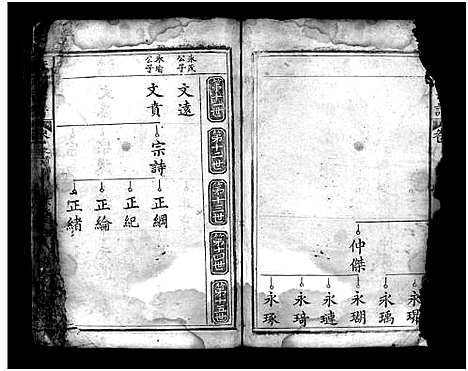 仲傑
永瑀
永瑚
永璉
永琦
永琢
第十一世
第十二世
第十三世
第十四世
第十五世
永茂公子
文遠
永瑜公子
文賁
宗詩
正綱
正紀
正綸
正緒